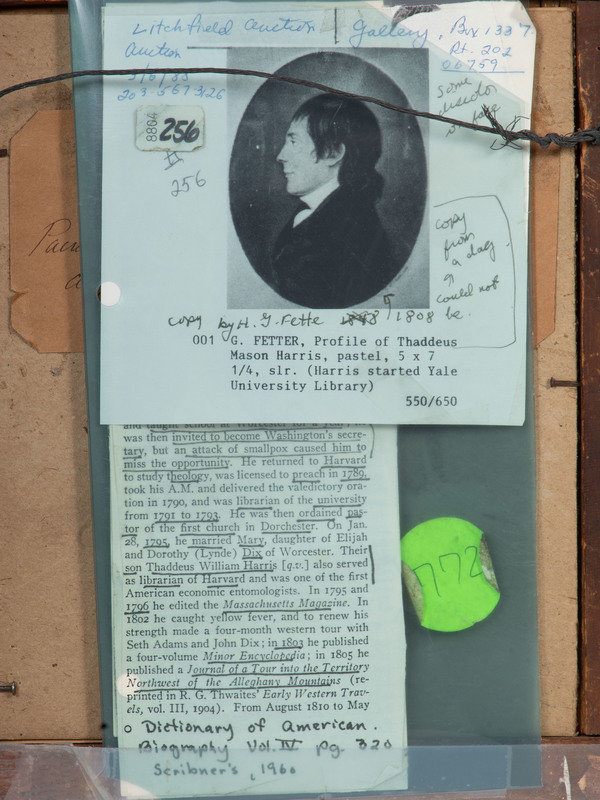 Litchfield Auction Gallery, Box 1337
Auction Rt. 202
5/8/88 06759
203-567-3126
8804
256
#
256
some
on face
copy
from
a dag
could not
be.
copy by H. G. Fette 1808
001 G. FETTER, Profile of Thaddeus
Mason Harris, pastel, 5 x 7
1/4, slr. (Harris started Yale
University Library)
550/650
and taught school at Worcester for a year,
was then invited to become Washington's secre-
tary, but an attack of smallpox caused him to
miss the opportunity. He returned to Harvard
to study theology, was licensed to preach in 1789,
took his A.M. and delivered the valedictory ora-
tion in 1790, and was librarian of the university
from 1791 to 1793. He was then ordained pas-
tor of the first church in Dorchester. On Jan.
28, 1795, he married Mary, daughter of Elijah
and Dorothy (Lynde) Dix of Worcester. Their
son Thaddeus William Harris [q.v.] also served
as librarian of Harvard and was one of the first
American economic entomologists. In 1795 and
1796 he edited the Massachusetts Magazine. In
1802 he caught yellow fever, and to renew his
strength made a four-month western tour with
Seth Adams and John Dix; in 1803 he published
a four-volume Minor Encyclopedia; in 1805 he
published a Journal of a Tour into the Territory
Northwest of the Alleghany Mountains (re-
printed in R. G. Thwaites' Early Western Trav-
els, vol. III, 1904). From August 1810 to May
Dictionary of American.
Biography Vol. IV pg. 320
Scribner's, 1960
772